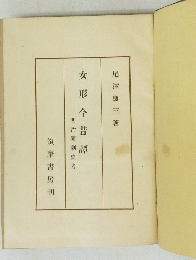 尾澤良三著
女形今昔譚
明治演劇史考
筑摩書房刊